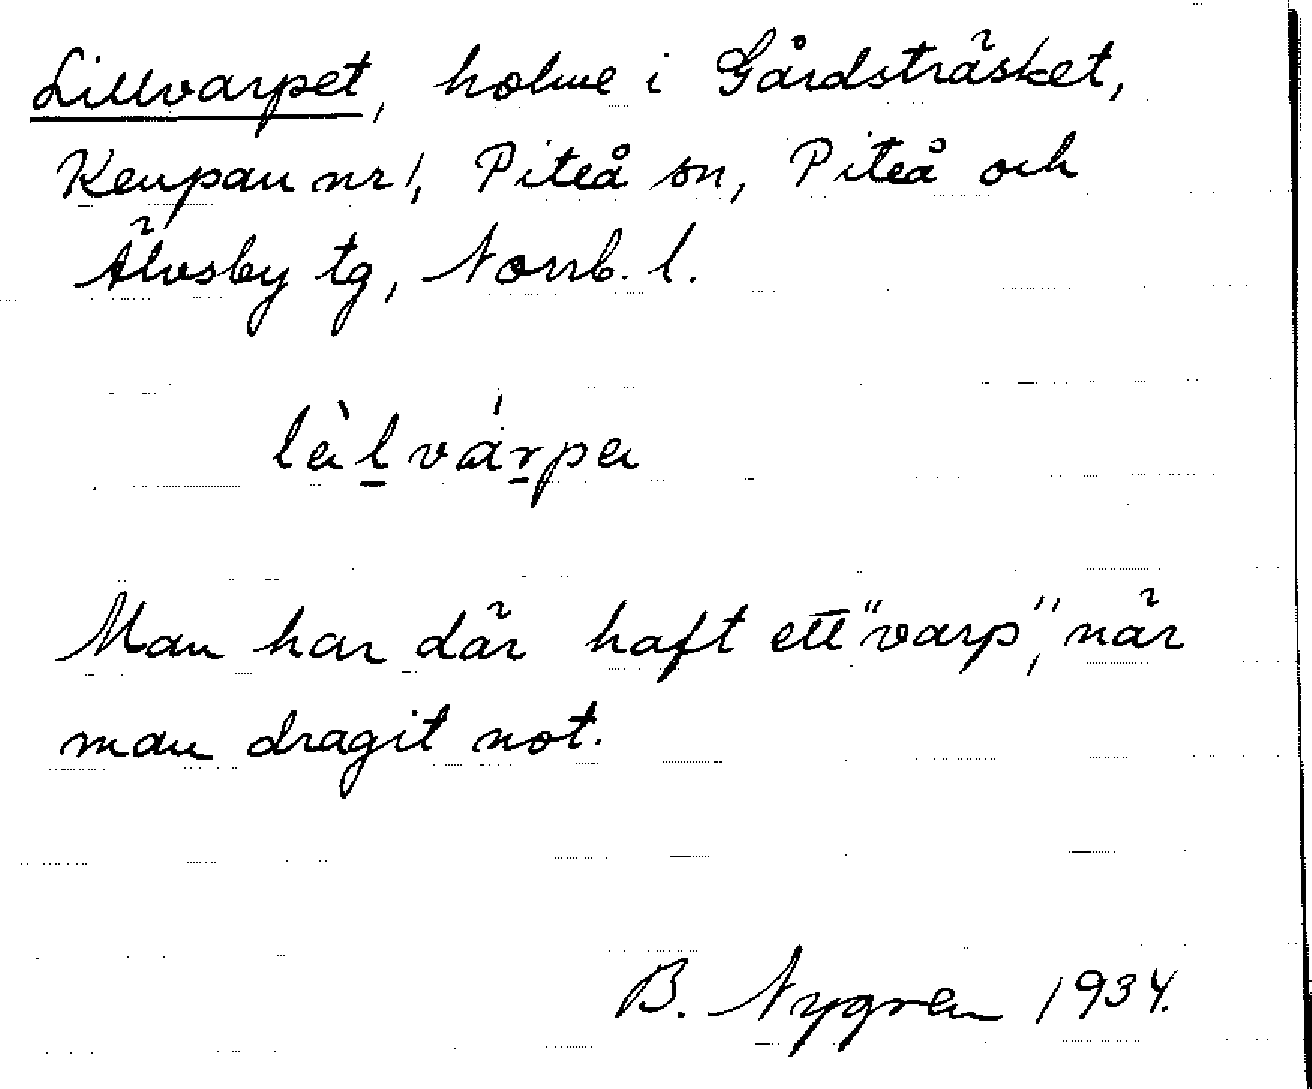 Lillvarpet, holme i Gårdsträsket,
Keupau nr 1, Piteå sn, Piteå och
Älvsby tg, Norrb. l.
làl̠ vár̠pa
Man har där haft ett "varp", när
man dragit not.
B. Nygren 1934.